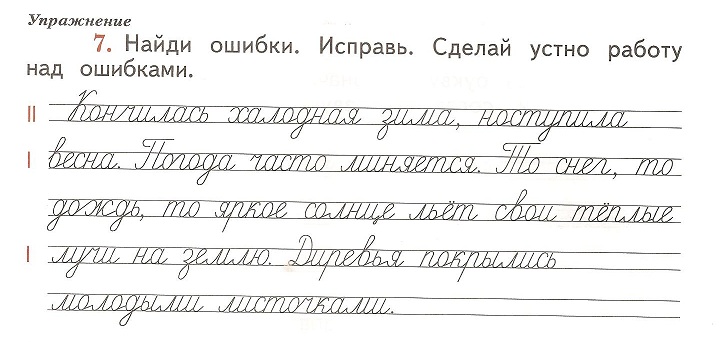 Упражнение
7. Найди ошибки. Исправь. Сделай устно работу
над ошибками.
II Кончилась халодная зима, ноступила
I весна. Погода часто миняется. То снег, то
дождь, то яркое солнце льёт свои тёплые
I лучи на землю. Диревья покрылись
молодыми листочками.